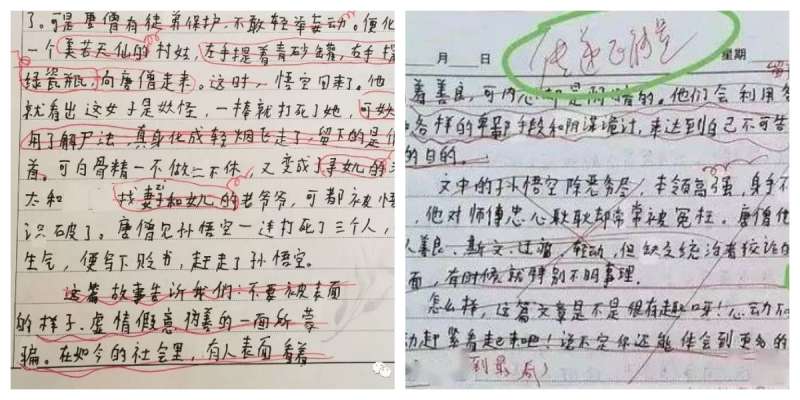 了。可是唐僧有徒弟保护，不敢轻举妄动。便化
一个美若天仙的村姑，左手提着青砂罐，右手提
绿瓷瓶，向唐僧走来。这时，悟空回来了。他
就看出这女子是妖怪，一棒就打死了她，可妖
用了解尸法，真身化成轻烟飞走了，留下的是
首。可白骨精一不做二不休，又变成了寻女儿的
太和 找妻子和女儿的老爷爷，可都被悟
识破了。唐僧见孙悟空一连打死了三个人，
生气，便写下贬书，赶走了孙悟空。
这篇故事告诉我们：不要被表面
的样子、虚情假意伪善的一面所蒙
骗。在如今的社会里，有人表面看着
月 日
传递正能量
星期
着善良，可内心却是阴暗的。他们会利用各
各样的卑鄙手段和阴谋诡计，来达到自己不可告
的目的。
文中的孙悟空除恶务尽，本领高强，身手不
，他对师傅忠心耿耿却常常被冤枉。唐僧
人善良、斯文、迂腐、轻动，但缺乏统治者狡诈的
面，有时候就特别不明事理。
怎么样，这篇文章是不是很有趣呀！心动不
动赶紧看起来吧！说不定你还能体会到更多的
到最后）